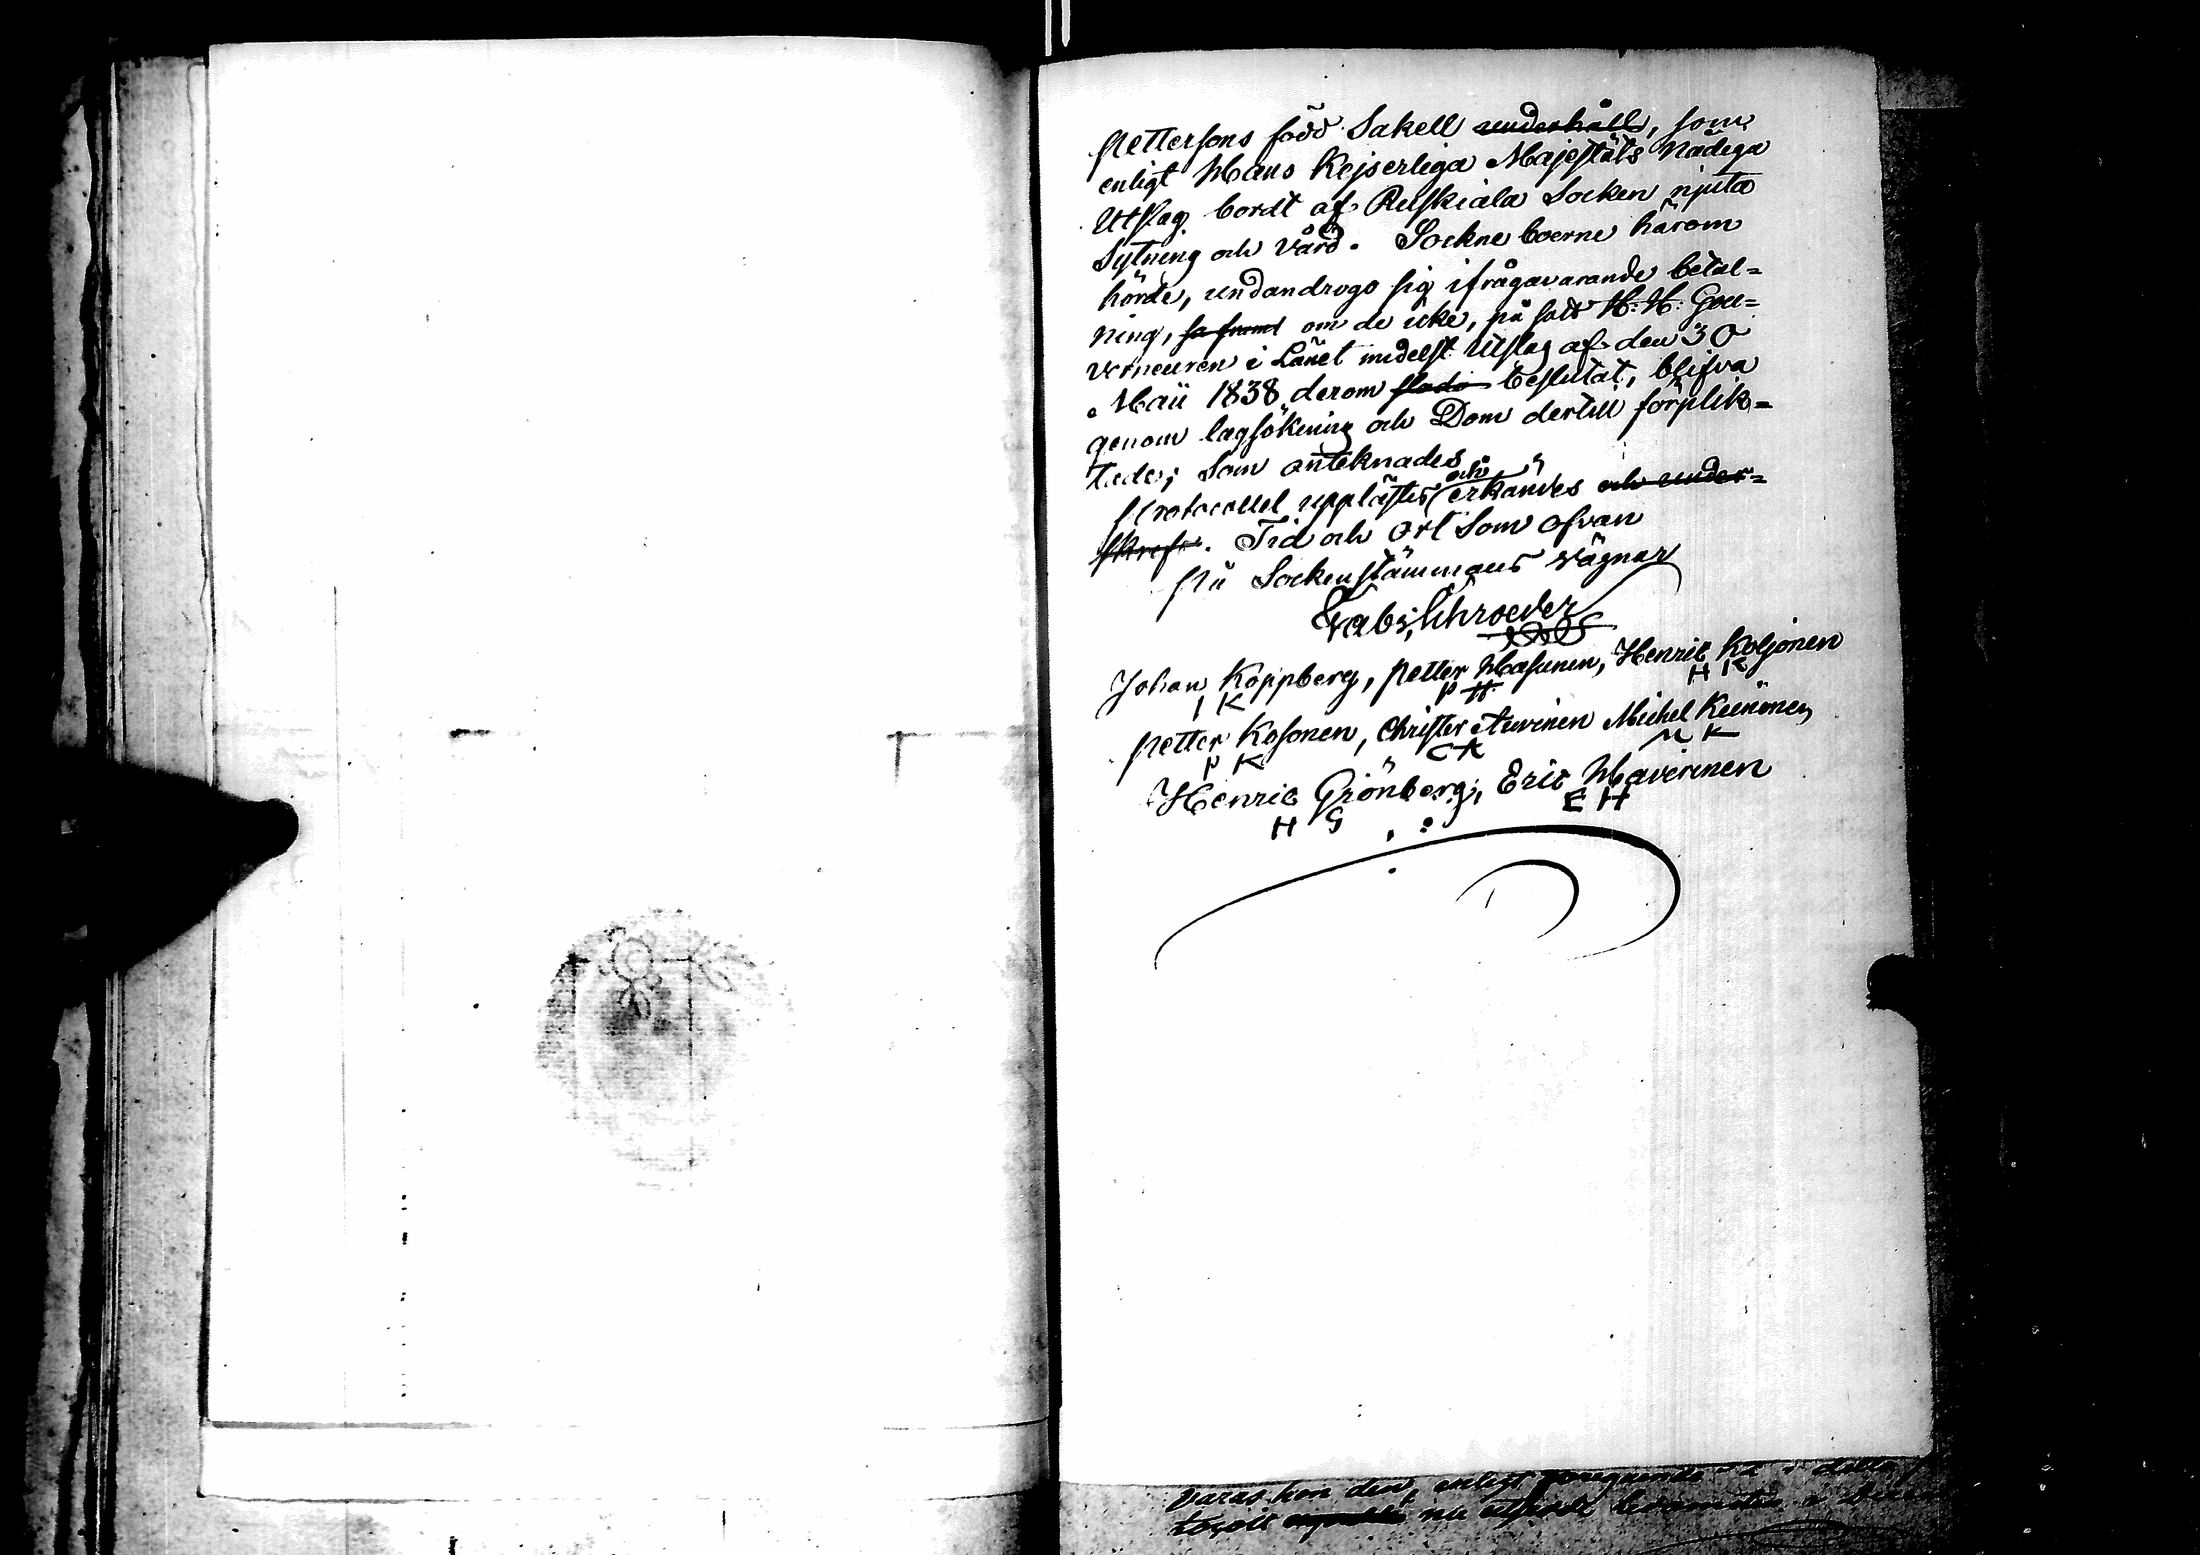 Pettersons född Sakell underhåll, som
enligt Hans Kejserliga Majestäts Nådiga
Utslag bordt af Ruskiala Socken njuta
Sytning och Vård. Sockneboerne härom
hörde, undandrogo sig ifrågavarande betal=
ning, så framt om de icke, på sätt H. H. Gou=
verneuren i Länet medelst Utslag af den 30
Maii 1838 derom beslutat, blifva
genom lagsökning och Dom dertill förplik=
tade; Som anteknades
Protocollet upplästes och erkändes och under=
skrefs. Tid och Ort Som ofvan
På Sockenstämmans vägnar
Fab: Schroeder
Johan Koppberg, Petter Hasunen, Henric Koljonen
I K P H H K
Petter Kosonen, Christer Auvinen Michel Keinönen
P K C A M K
Henric Grönberg, Eric Haverinen
H G E H
varas kon den, enligt föregående
nu